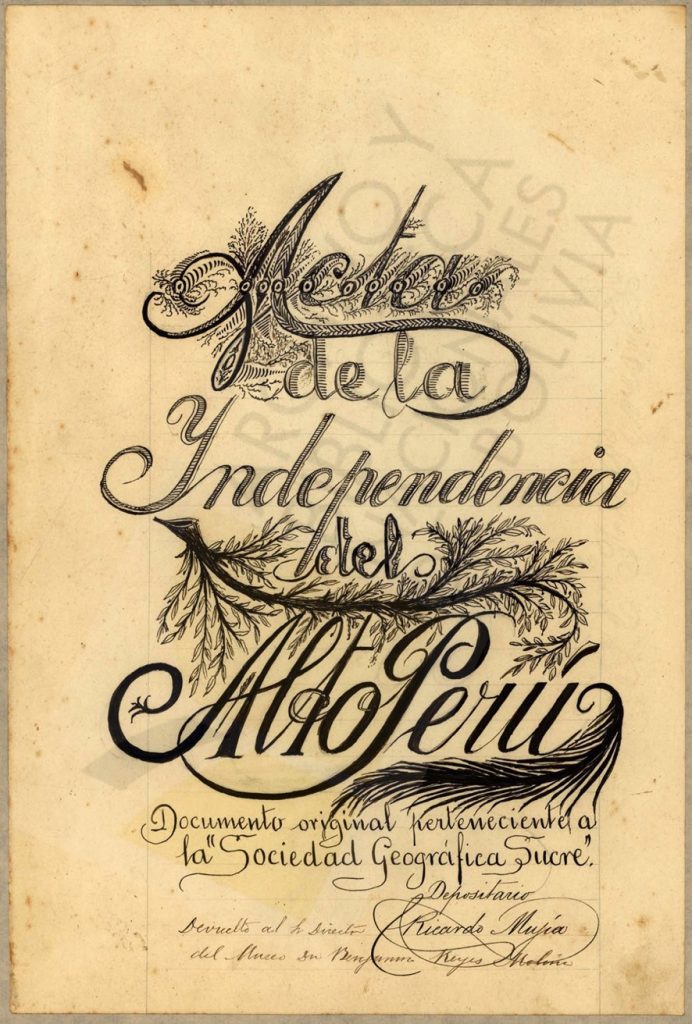 Acta
de la
Yndependencia
del
Alto Perú
Documento original perteneciente a
la "Sociedad Geográfica Sucre".
Depositario
Ricardo Mujía
Devuelto al Director
del Museo Dn Benjamin Reyes Molina
ARCHIVO Y
BIBLIOTECA
NACIONALES
BOLIVIA